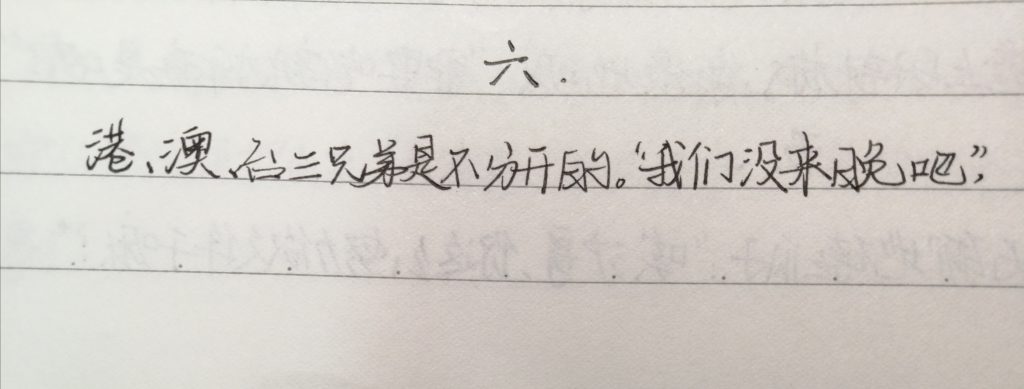 六.
港、澳、台三兄弟是不分开的。“我们没来晚吧,”